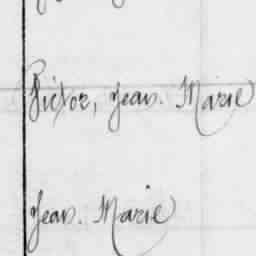 Victor, Jean. Marie
Jean. Marie